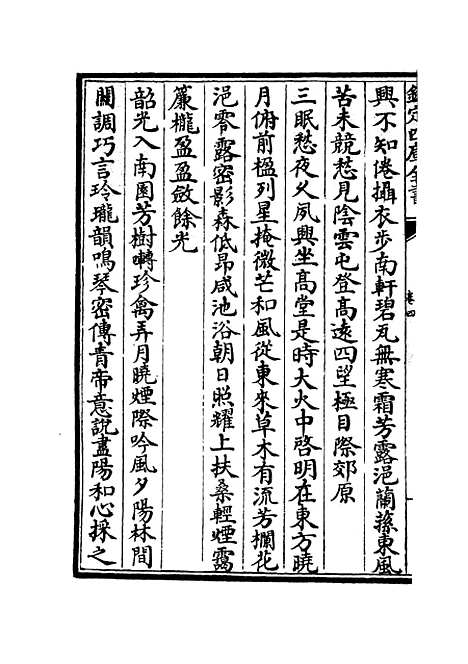 欽定四庫全書
卷四
興不知倦攝衣步南軒碧瓦無寒霜芳露浥蘭蓀東風
苦未競愁見陰雲屯登高遠四望極目際郊原
三眠愁夜久夙興坐高堂是時大火中啓明在東方曉
月俯前楹列星掩微芒和風從東來草木有流芳欄花
浥零露密影森低昂咸池浴朝日照耀上扶桑輕煙靄
簾櫳盈盈斂餘光
韶光入南園芳樹囀珍禽弄月曉煙際吟風夕陽林間
關調巧言玲瓏韻鳴琴密傳青帝意說盡陽和心採之